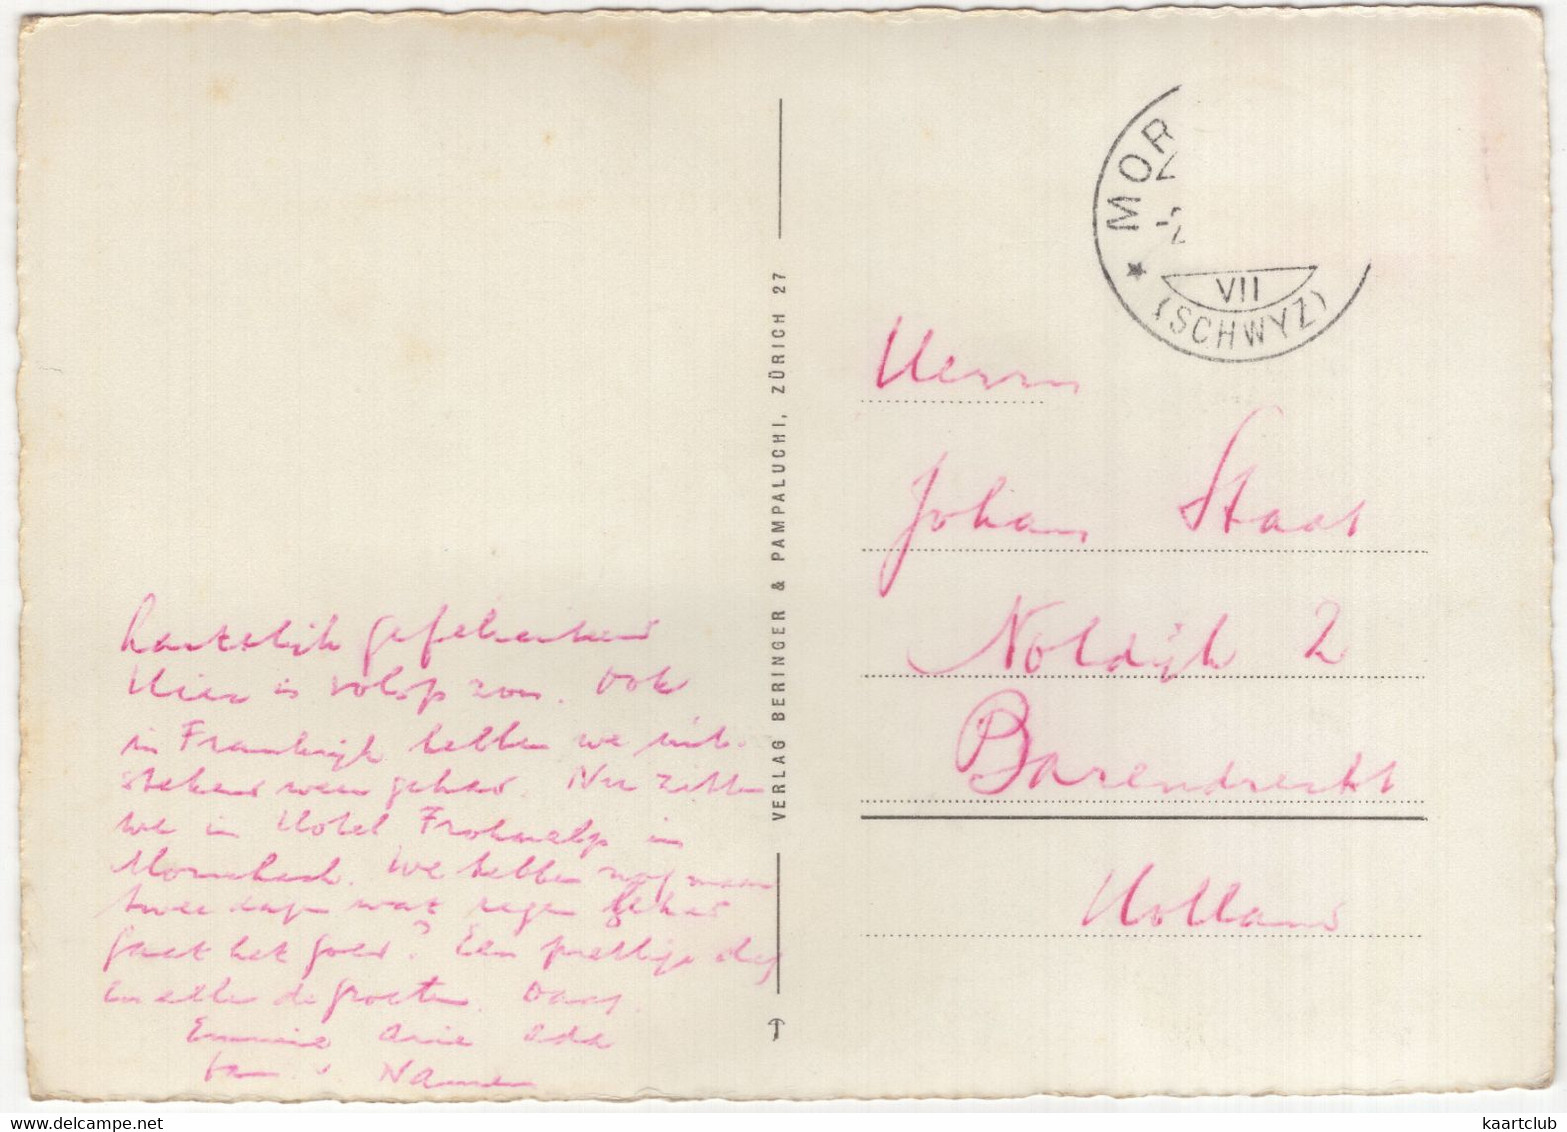 Hartelijk gefeliciteerd
Hier is volop zon. Ook
in Frankrijk hebben we uit-
stekend weer gehad. Nu zitten
we in Hotel Frohnalp in
Morschach. We hebben nog maar
twee dagen wat regen gehad
Gaat het goed? Een prettige dag
en allen de groeten. Daag.
Emmie Arie Ada
VERLAG BERINGER & PAMPALUCHI, ZÜRICH 27
MOR
-2
VII
(SCHWYZ)
Herrn
Johan Staat
Noldijk 2
Barendrecht
Holland
www.delcampe.net
kaartclub